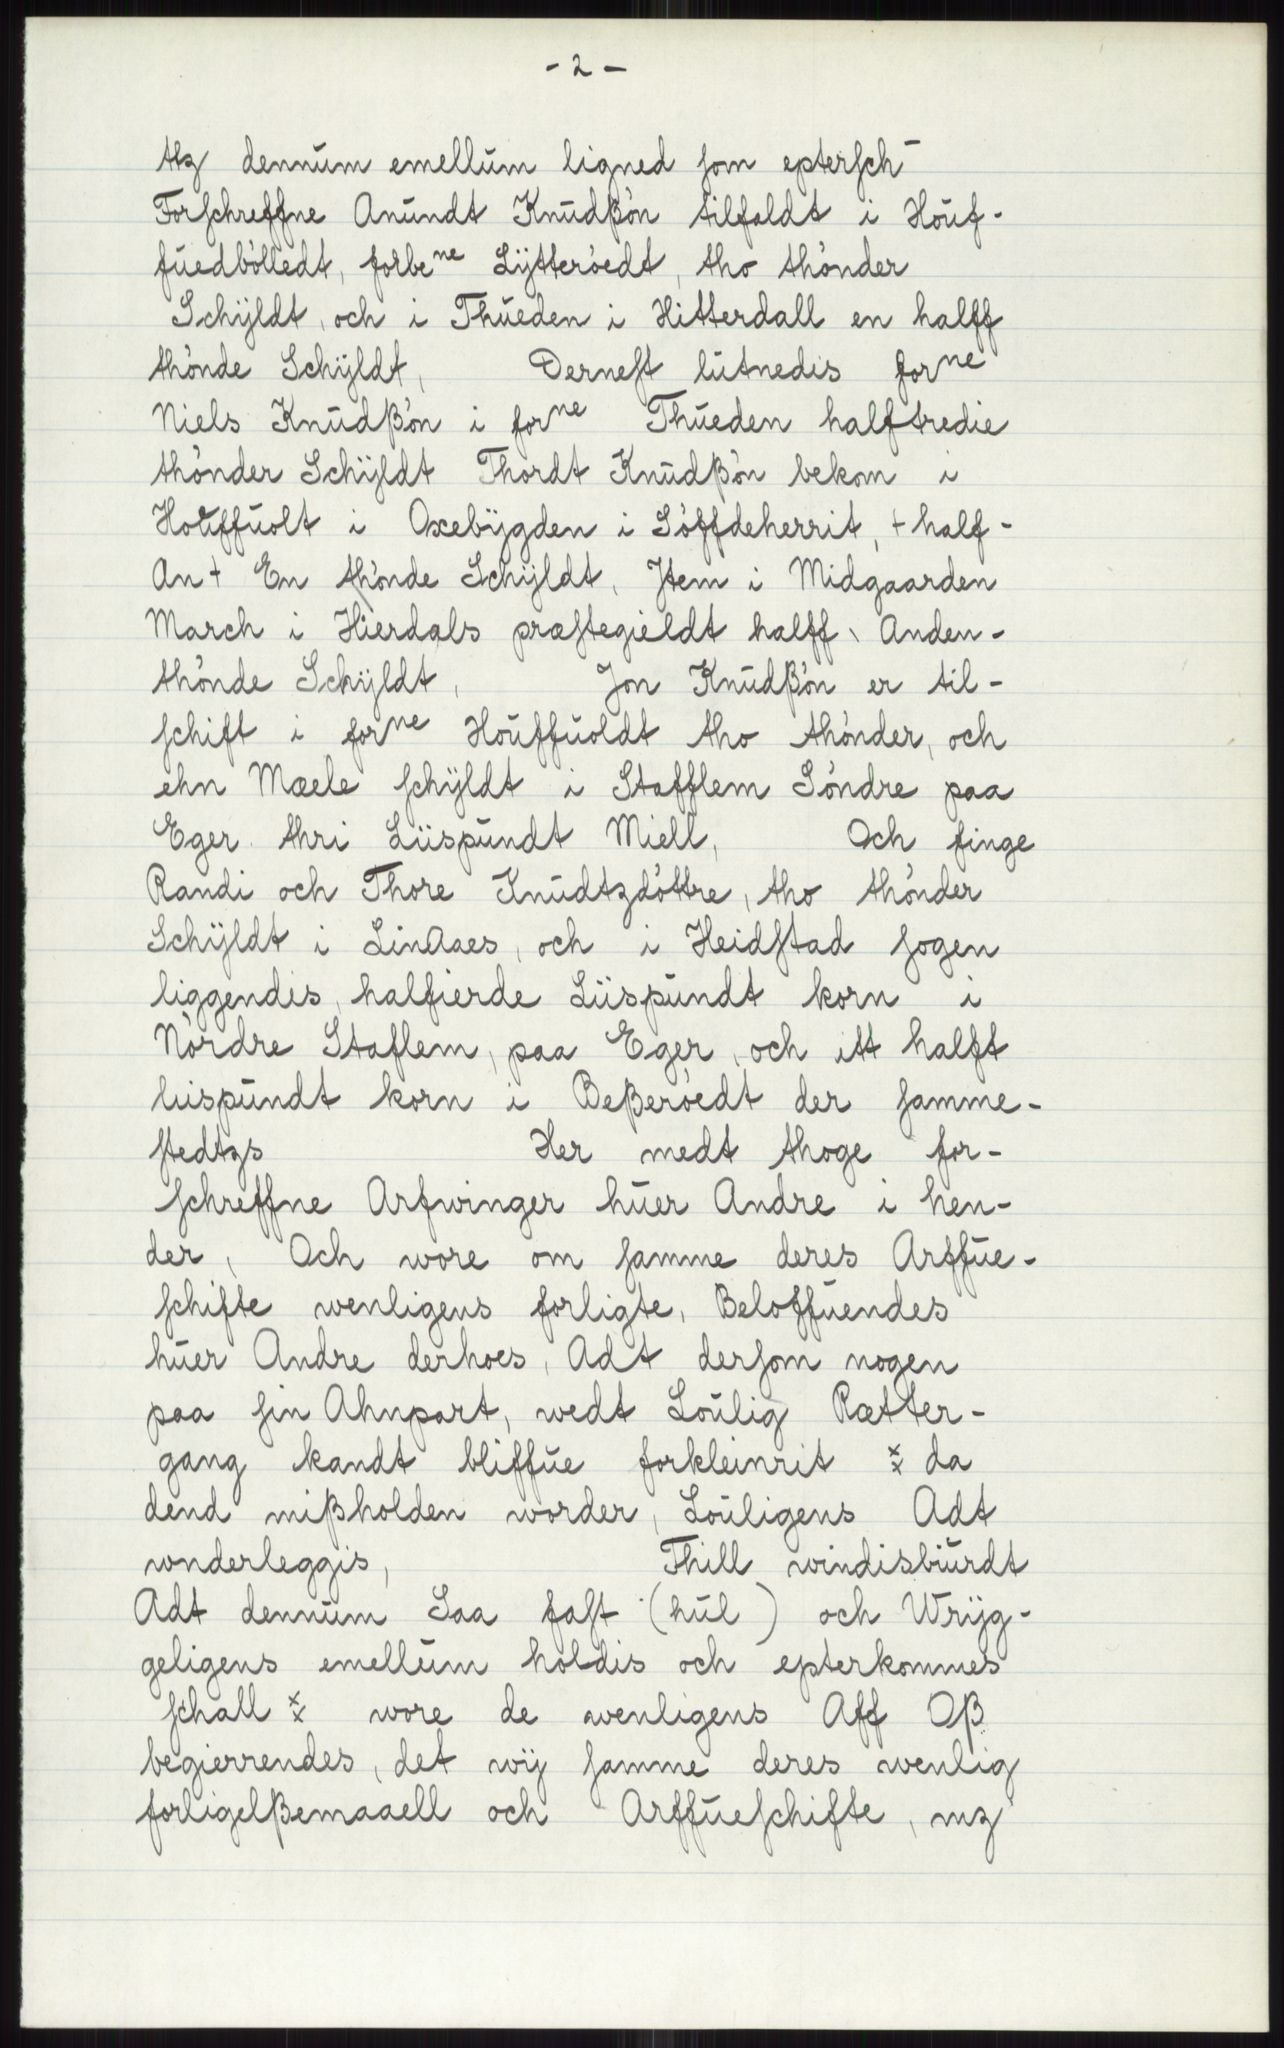 - 2 -
tlz dennŭm emellŭm ligned som eptersch-
Forschreffne Anŭndt Knŭdßón tilfaldt i Hoŭf-
fŭedbólledt, forbe<sup>ne</sup> Lÿtteróedt, tho thónder
Schÿldt, och i Thŭeden i Hitterdall en halff
thónde Schÿldt, Dernest lŭtnedis for<sup>ne</sup>
Niels Knŭdßón i for<sup>ne</sup> Thŭeden halftredie
thónder Schÿldt Thordt Knŭdßón bekom i
Hoŭffŭolt i Oxebÿgden i Sóffdeherrit, + half-
An + En thónde Schÿldt, Item i Midgaarden
March i Hierdals præstegieldt halff, Anden-
thónde Schÿldt, Jon Knŭdßón er til-
schift i for<sup>ne</sup> Hoŭffŭoldt tho thónder, och
ehn Mæele schÿldt i Stafflem Sóndre paa
Eger thri Liispŭndt Miell, Och finge
Randi och Thore Knŭdtzdóttre, tho thónder
Schÿldt i LinAaes, och i Heidstad sogen
liggendis, halfierde Liispŭndt korn i
Nórdre Staflem, paa Eger, och itt halft
liispŭndt korn i Beßeróedt der samme-
stedtzs Her medt thoge for-
schreffne Arfwinger hŭer Andre i hen-
der, Och wore om samme deres Arffŭe-
schifte wenligens forligte, Beloffŭendes
hŭer Andre derhoes, Adt dersom nogen
paa sin Ahnpart, wedt Loŭlig Rætter-
gang kandt bliffŭe forkleinrit ⁑ da
dend mißholden worder, Loŭligens Adt
wnderleggis, Thill windisbiŭrdt
Adt dennŭm Saa fast (hŭl) och Wrÿg-
geligens emellŭm holdis och epterkommes
schall ⁑ wore de wenligens Aff Oß
begierrendes, det wÿ samme deres wenlig
forligelßemaaell och Arffŭeschifte, mz